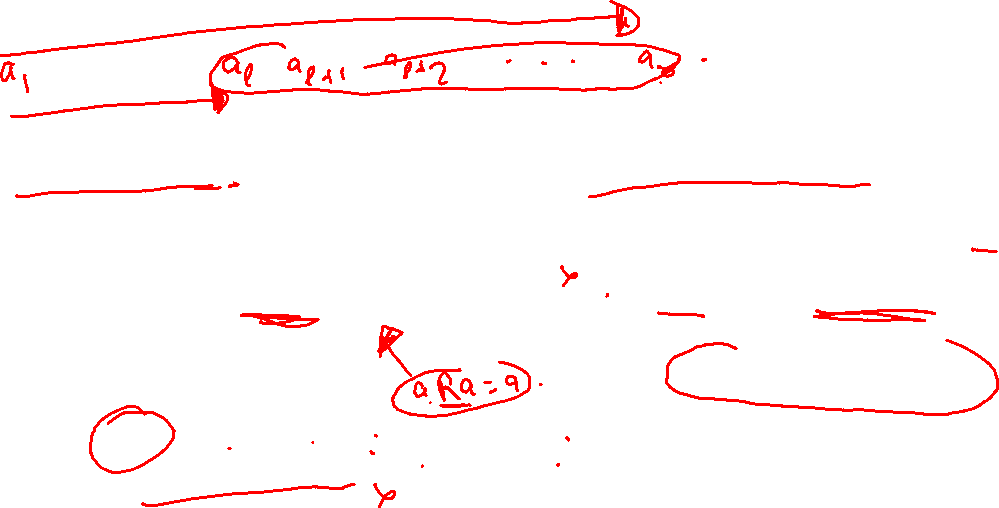 a₁ aₗ aₗ₊₁ aₗ₊₂ . . .
a R a = a